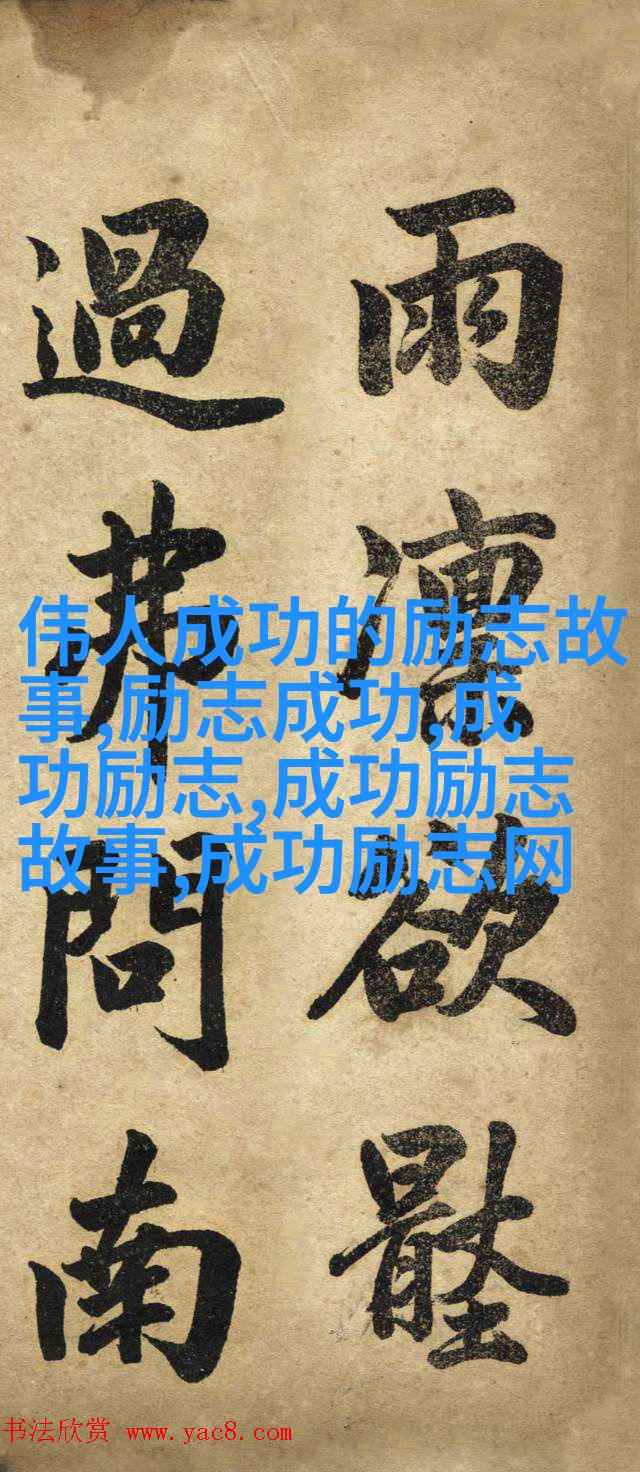 雨凜欲
過問南
伟人成功的励志故
事,励志成功,成
功励志,成功励志
故事,成功励志网
书法欣赏 www.yac8.com